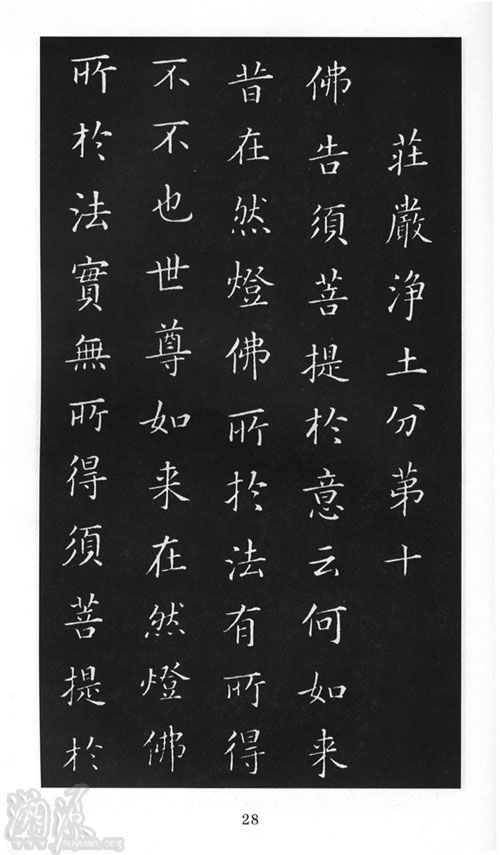 莊嚴淨土分第十
佛告須菩提於意云何如来
昔在然燈佛所於法有所得
不不也世尊如来在然燈佛
所於法實無所得須菩提於
28
溯源
www.suyuan.org